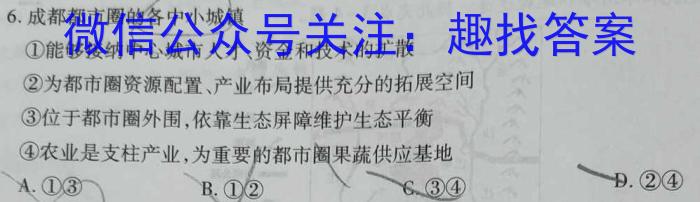 6.成都都市圈的各中小城镇
微信公众号关注：趣找答案
①能够接纳中心城市人才、资金和技术的扩散
②为都市圈资源配置、产业布局提供充分的拓展空间
③位于都市圈外围,依靠生态屏障维护生态平衡
④农业是支柱产业,为重要的都市圈果蔬供应基地
A.①③ B.①② C.③④ D.②④